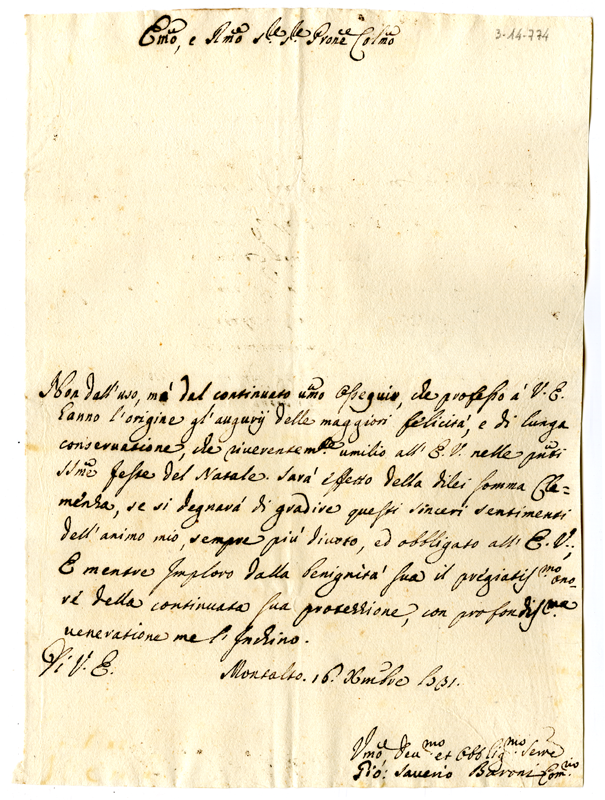 Emo, e Rmo Sle Sle Prone Colmo
3-14-774
Non dall'uso, má dal continuato umo Ossequio, che professo á V. E.
hanno l'origine gl'augurij delle maggiori felicità, e di lunga
conseruatione, che riuerentemte umilio all'E. V. nelle pnti
SSme feste del Natale. Sará effetto della dilei somma Cle=
menza, se si degnará di gradire questi sinceri sentimenti
dell'animo mio, sempre piú diuoto, ed obbligato all'E. V.:
E mentre Imploro dalla benignitá sua il pregiatismo ono-
re della continuata sua protezzione, con profondisma
ueneratione me l'Inchino.
Di V. E.
Montalto. 16. Xmbre
Vmo Deumo et Obbligmo Serre
Gio: Sauerio Baroni Comrio